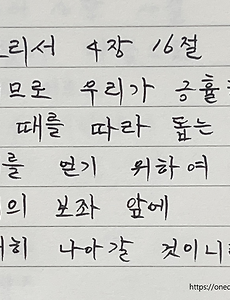 리서 4장 16절
므로 우리가 긍휼
때를 따라 돕는
를 얻기 위하여
의 보좌 앞에
히 나아갈 것이니
https://onec